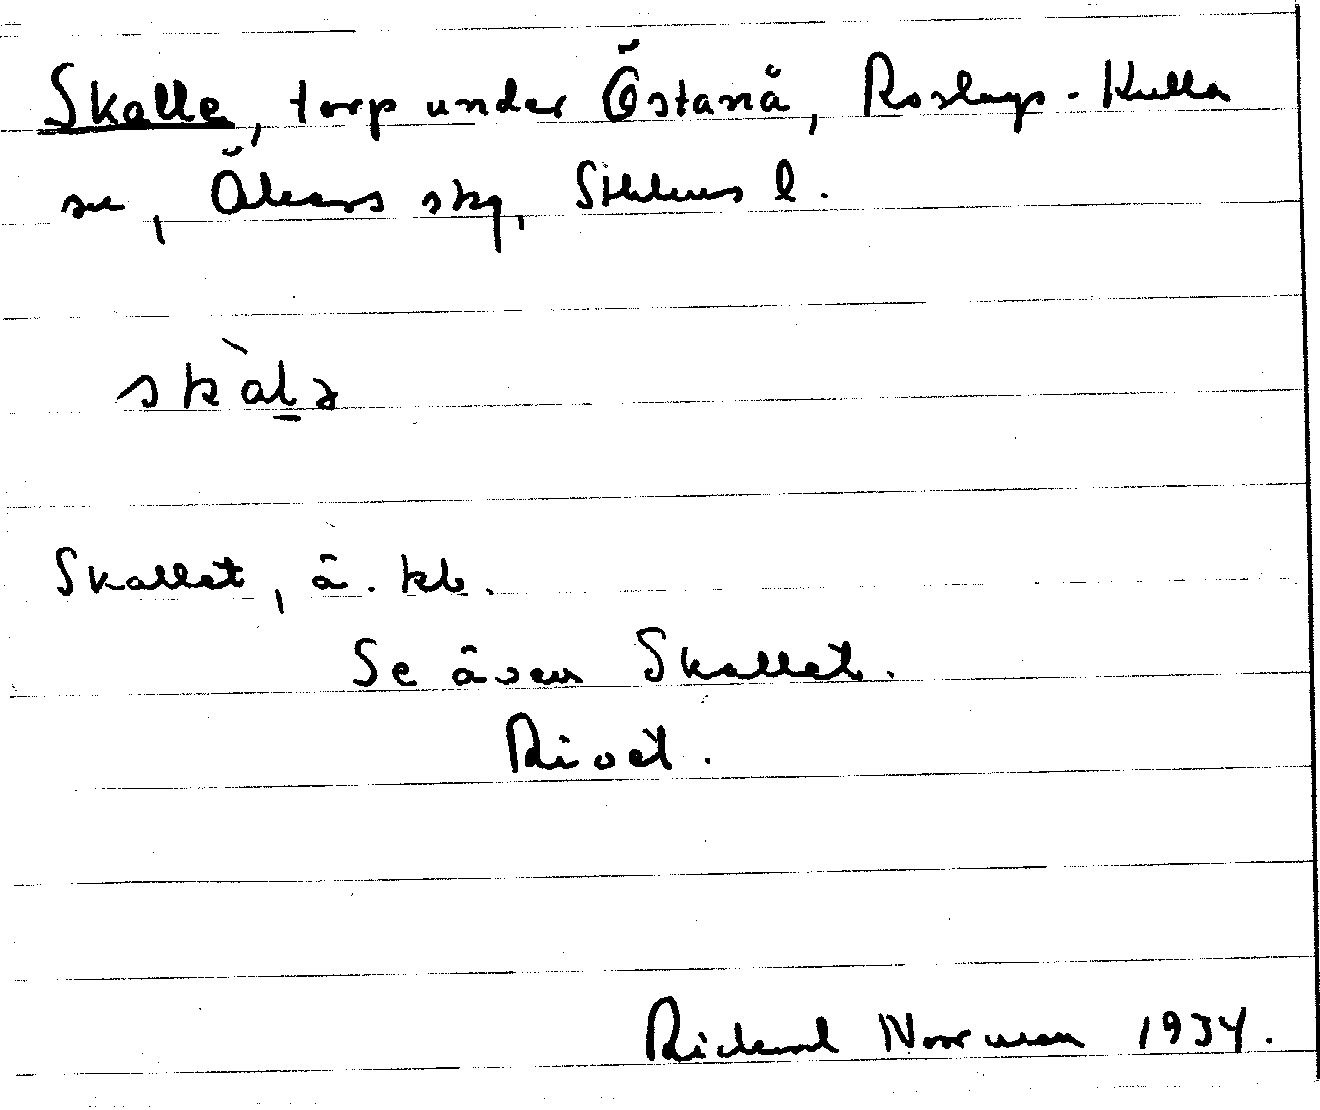 Skalle, torp under Östanå, Roslags-Kulla
sn, Åkers skg, Sthlms l.
skàlə
Skallet, ä. kb.
Se även Skallet.
Rivet.
Rickard Norrman 1934.